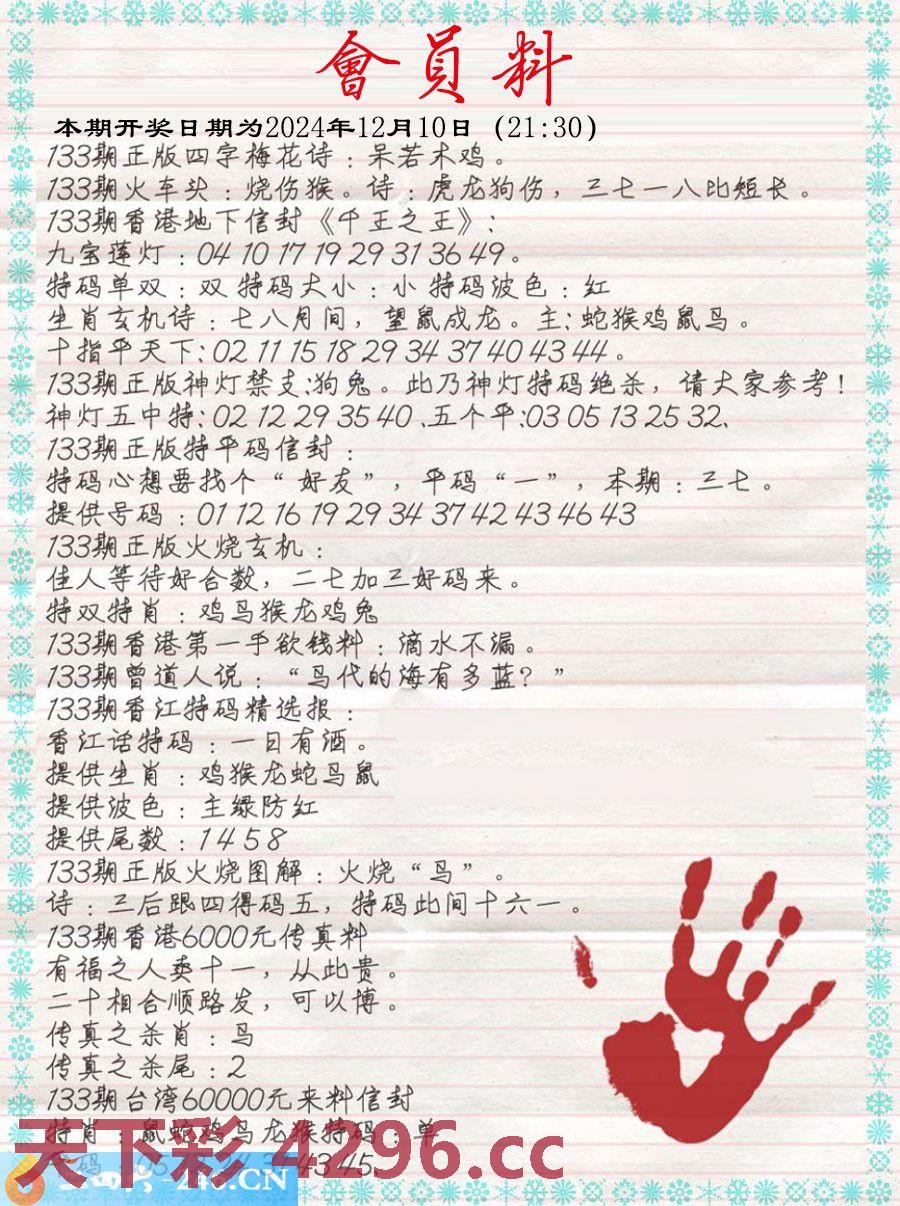 會員料
本期开奖日期为2024年12月10日（21:30）
133期正版四字梅花诗：呆若木鸡。
133期火车头：烧伤猴。诗：虎龙狗伤，三七一八比短长。
133期香港地下信封《千王之王》：
九宝莲灯：04 10 17 19 29 31 36 49。
特码单双：双 特码大小：小 特码波色：红
生肖玄机诗：七八月间，望鼠成龙。主：蛇猴鸡鼠鸟。
十指平天下：02 11 15 18 29 34 37 40 43 44。
133期正版神灯禁支：狗兔。此乃神灯特码绝杀，请大家参考！
神灯五中特：02 12 29 35 40 .五个平：03 05 13 25 32.
133期正版特平码信封：
特码心想要找个“好友”，平码“一”，本期：三七。
提供号码：01 12 16 19 29 34 37 42 43 46 43
133期正版火烧玄机：
佳人等待好合数，二七加三好码来。
特双特肖：鸡鸟猴龙鸡兔
133期香港第一手欲钱料：滴水不漏。
133期曾道人说：“鸟代的海有多蓝？”
133期香江特码精选报：
香江话特码：一日有酒。
提供生肖：鸡猴龙蛇鸟鼠
提供波色：主绿防红
提供尾数：1 4 5 8
133期正版火烧图解：火烧“鸟”。
诗：三后跟四得码五，特码此间十六一。
133期香港6000元传真料
有福之人卖十一，从此贵。
二十相合顺路发，可以博。
传真之杀肖：鸟
传真之杀尾：2
133期台湾60000元来料信封
特肖：鼠蛇鸡鸟龙猴特码：单
43 45
天下彩 4296.cc
246.CN